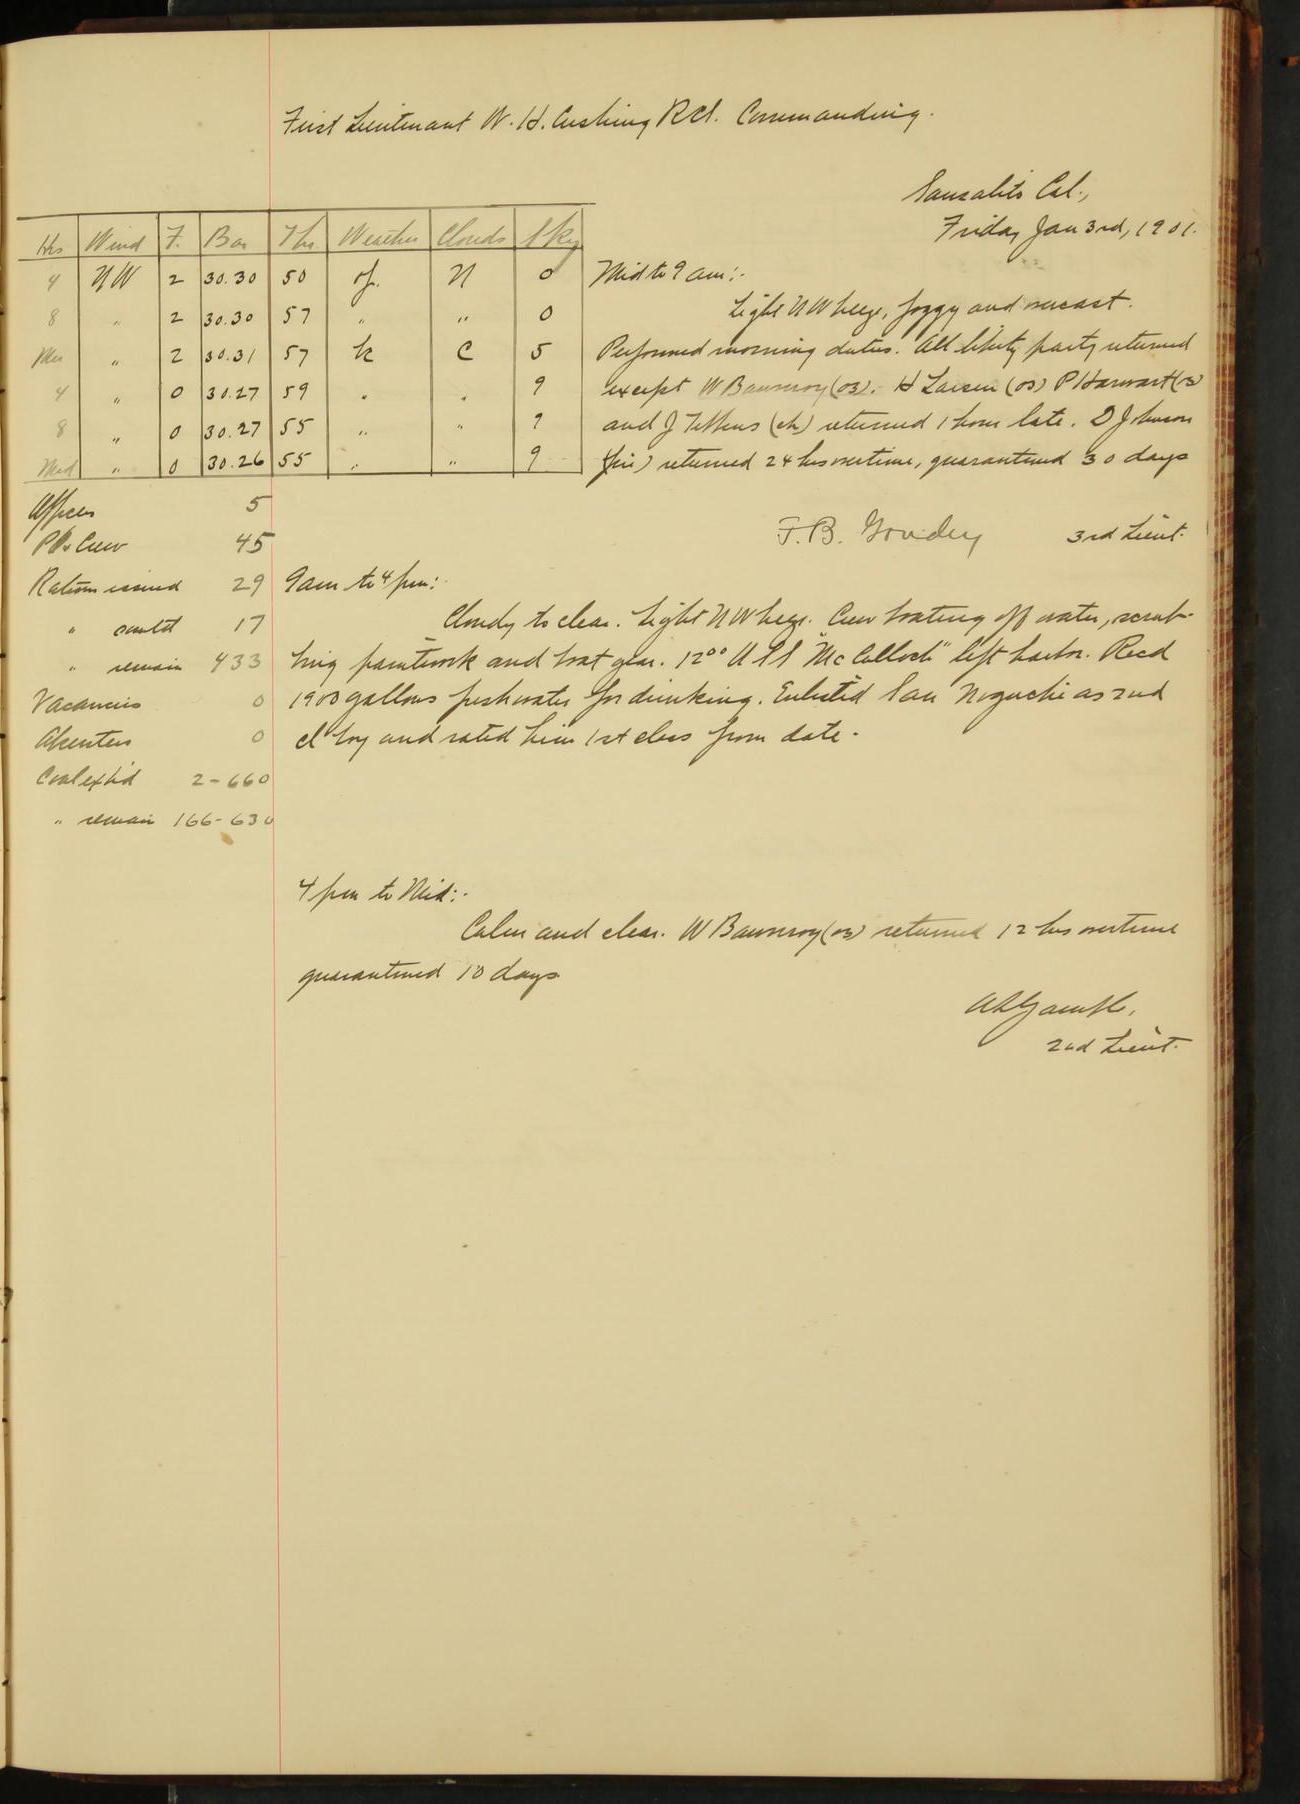 First Lieutenant W. H. Cushing RCS. Commanding.
Sausalito Cal.,
Friday Jan 3rd, 1901.
Hrs Wind F. Bar Thr Weather Clouds Sky
4 NW 2 30.30 50 of. N 0
8 " 2 30.30 57 " " 0
Mer " 2 30.31 57 bc C 5
4 " 0 30.27 59 " " 9
8 " 0 30.27 55 " " 9
Mid " 0 30.26 55 " " 9
Mid to 9 am:-
Light NW breeze, foggy and overcast.
Performed morning duties. All liberty party returned
except W (os). H Larsen (os) P (s)
and J (ch) returned 1 hour late. D Johnson
(fire) returned 24 hrs overtime, quarantined 30 days
F. B. 3rd Lieut.
Officers 5
P.O. & Crew 45
Rations issued 29
" comtd 17
" remain 433
Vacancies 0
Absentees 0
Coal exp'd 2-660
" remain 166-630
9am to 4 pm:
Cloudy to clear. Light NW breeze. Crew boating off water, scrub-
bing paintwork and boat gear. 12°° USS "McCulloch" left harbor. Recd
1900 gallons fresh water for drinking. Enlisted San Noguchi as 2nd
cl boy and rated him 1st class from date.
4 pm to Mid:-
Calm and clear. W (os) returned 12 hrs overtime
quarantined 10 days
2nd Lieut.